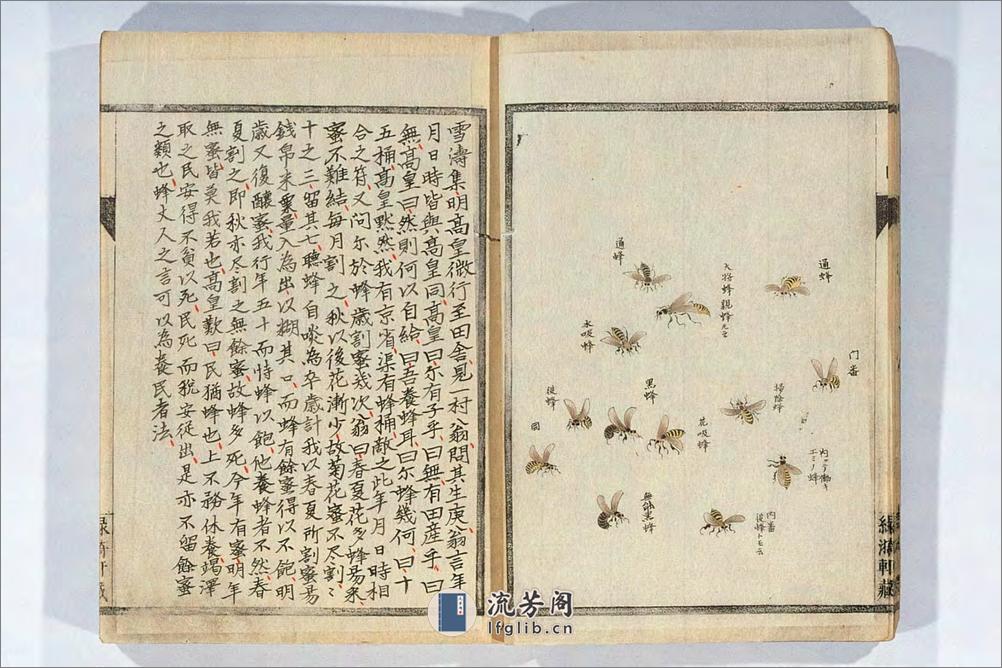 通蜂
大将蜂親蜂モ云
通蜂
水吸蜂
門番
掃除蜂
黒蜂
花吸蜂
從蜂
内ニテ働キ
エミノ蜂
無能黒蜂
内番
從蜂トモ云
雪濤集明高皇微行至田舍見一村翁問其生庚翁言年
月日時皆與高皇同高皇曰尔有子乎曰無有田産乎曰
無高皇曰然則何以自給曰吾養蜂耳曰尔蜂幾何曰十
五桶高皇黙然我有京省渠有蜂桶敵之此年月日時相
合之符又問尔於蜂歳割蜜幾次翁曰春夏花多蜂易采
蜜不難結毎月割之秋以後花漸少故菊花蜜不尽割〻
十之三留其七聽蜂自啖為卒歳計我以春夏所割蜜易
錢帛米粟量入為出以糊其口而蜂有餘蜜得以不飽明
歳又復釀蜜我行年五十而恃蜂以飽他養蜂者不然春
夏割之即秋亦尽割之無餘蜜故蜂多死今年有蜜明年
無蜜皆莫我若也高皇歎曰民猶蜂也上不務休養竭澤
取之民安得不貧以死民死而税安從出是亦不留餘蜜
之類也蜂丈人之言可以為養民者法
流芳阁
lfglib.cn